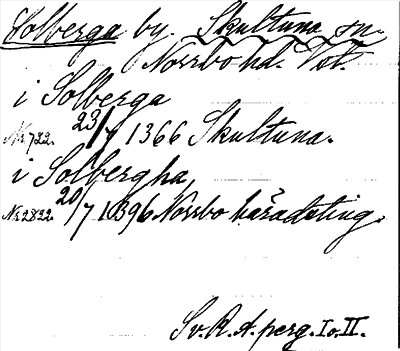 Solberga by. Skultuna sn.
Norrbo hd. Vst.
i Solberga
Nr 722. 23/7 1366 Skultuna.
i Solbergha
Nr 2832. 20/7 1396 Norrbo häradsting.
Sv. R. A. perg. I o. II.